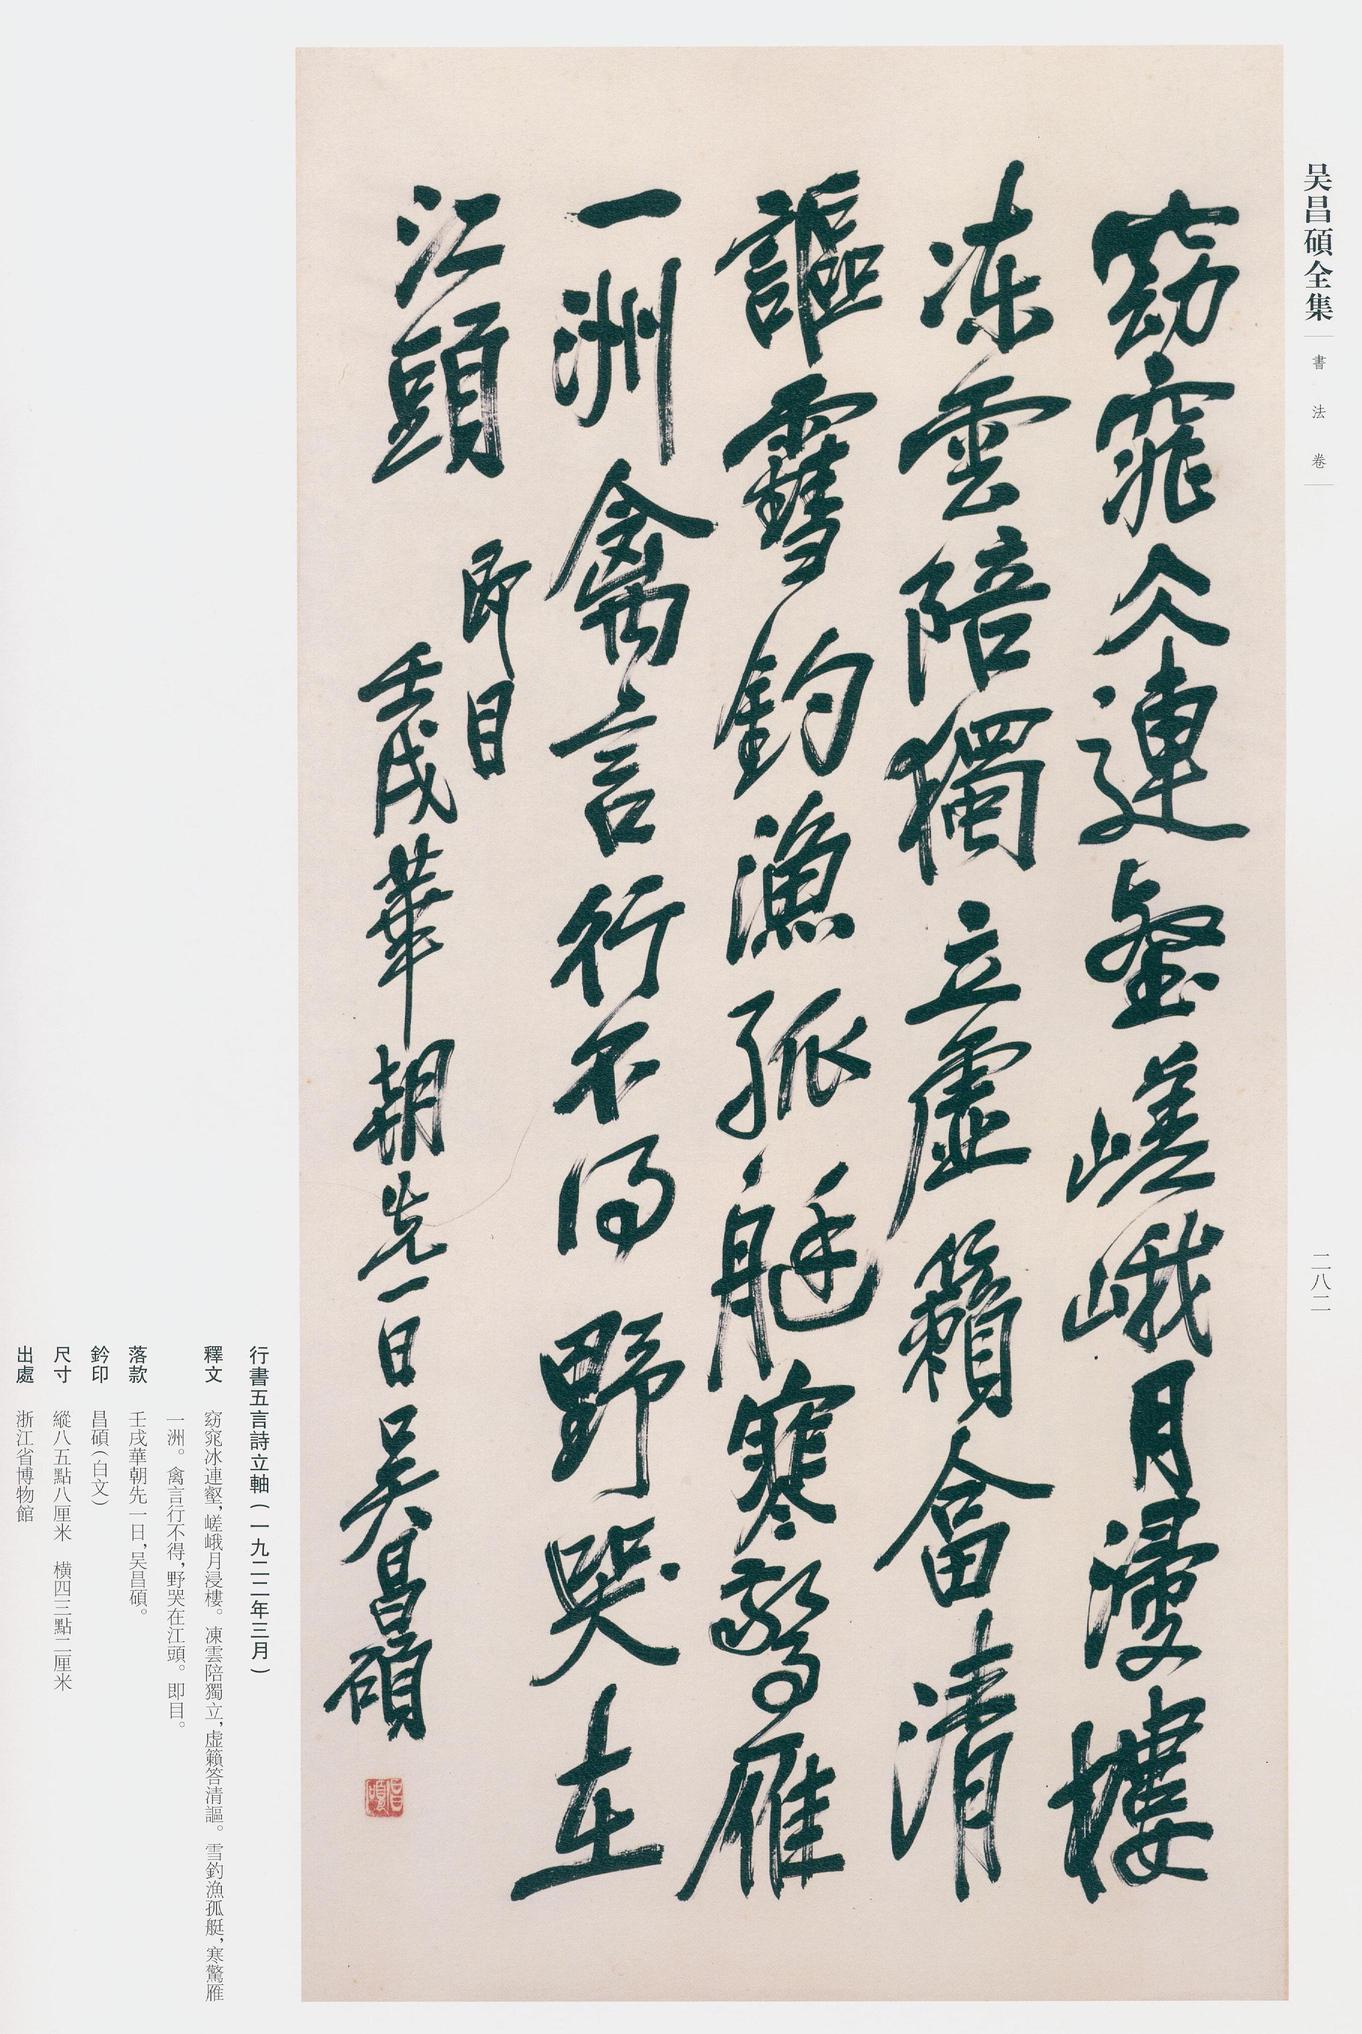 吴昌碩全集
書法卷
二八二
窈窕仌連壑嵯峨月浸樓
凍雲陪獨立虛籟畣清
謳雪釣漁孤艇寒驚雁
一洲禽言行不得野哭在
江頭
即目
壬戌華朝先一日吴昌碩
昌碩
行書五言詩立軸(一九二二年三月)
釋文 窈窕冰連壑,嵯峨月浸樓。凍雲陪獨立,虛籟答清謳。雪釣漁孤艇,寒驚雁
一洲。禽言行不得,野哭在江頭。即目。
落款 壬戌華朝先一日,吴昌碩。
鈐印 昌碩(白文)
尺寸 縱八五點八厘米 橫四三點二厘米
出處 浙江省博物館